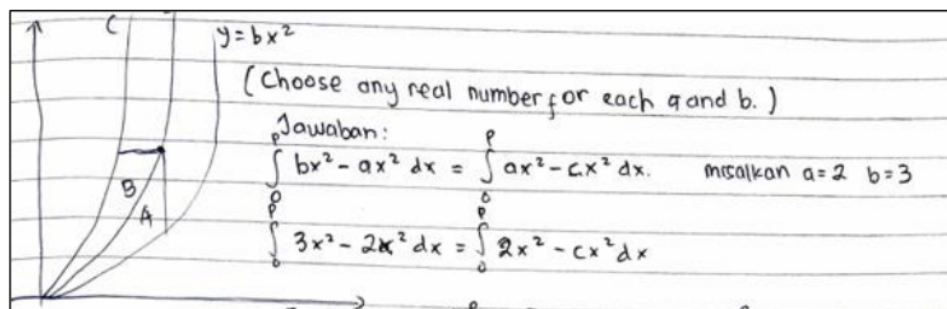 C
y = bx²
(Choose any real number for each a and b.)
Jawaban:
∫₀ᵖ bx² - ax² dx = ∫₀ᵖ ax² - cx² dx. misalkan a=2 b=3
B
A
∫₀ᵖ 3x² - 2x² dx = ∫₀ᵖ 2x² - cx² dx